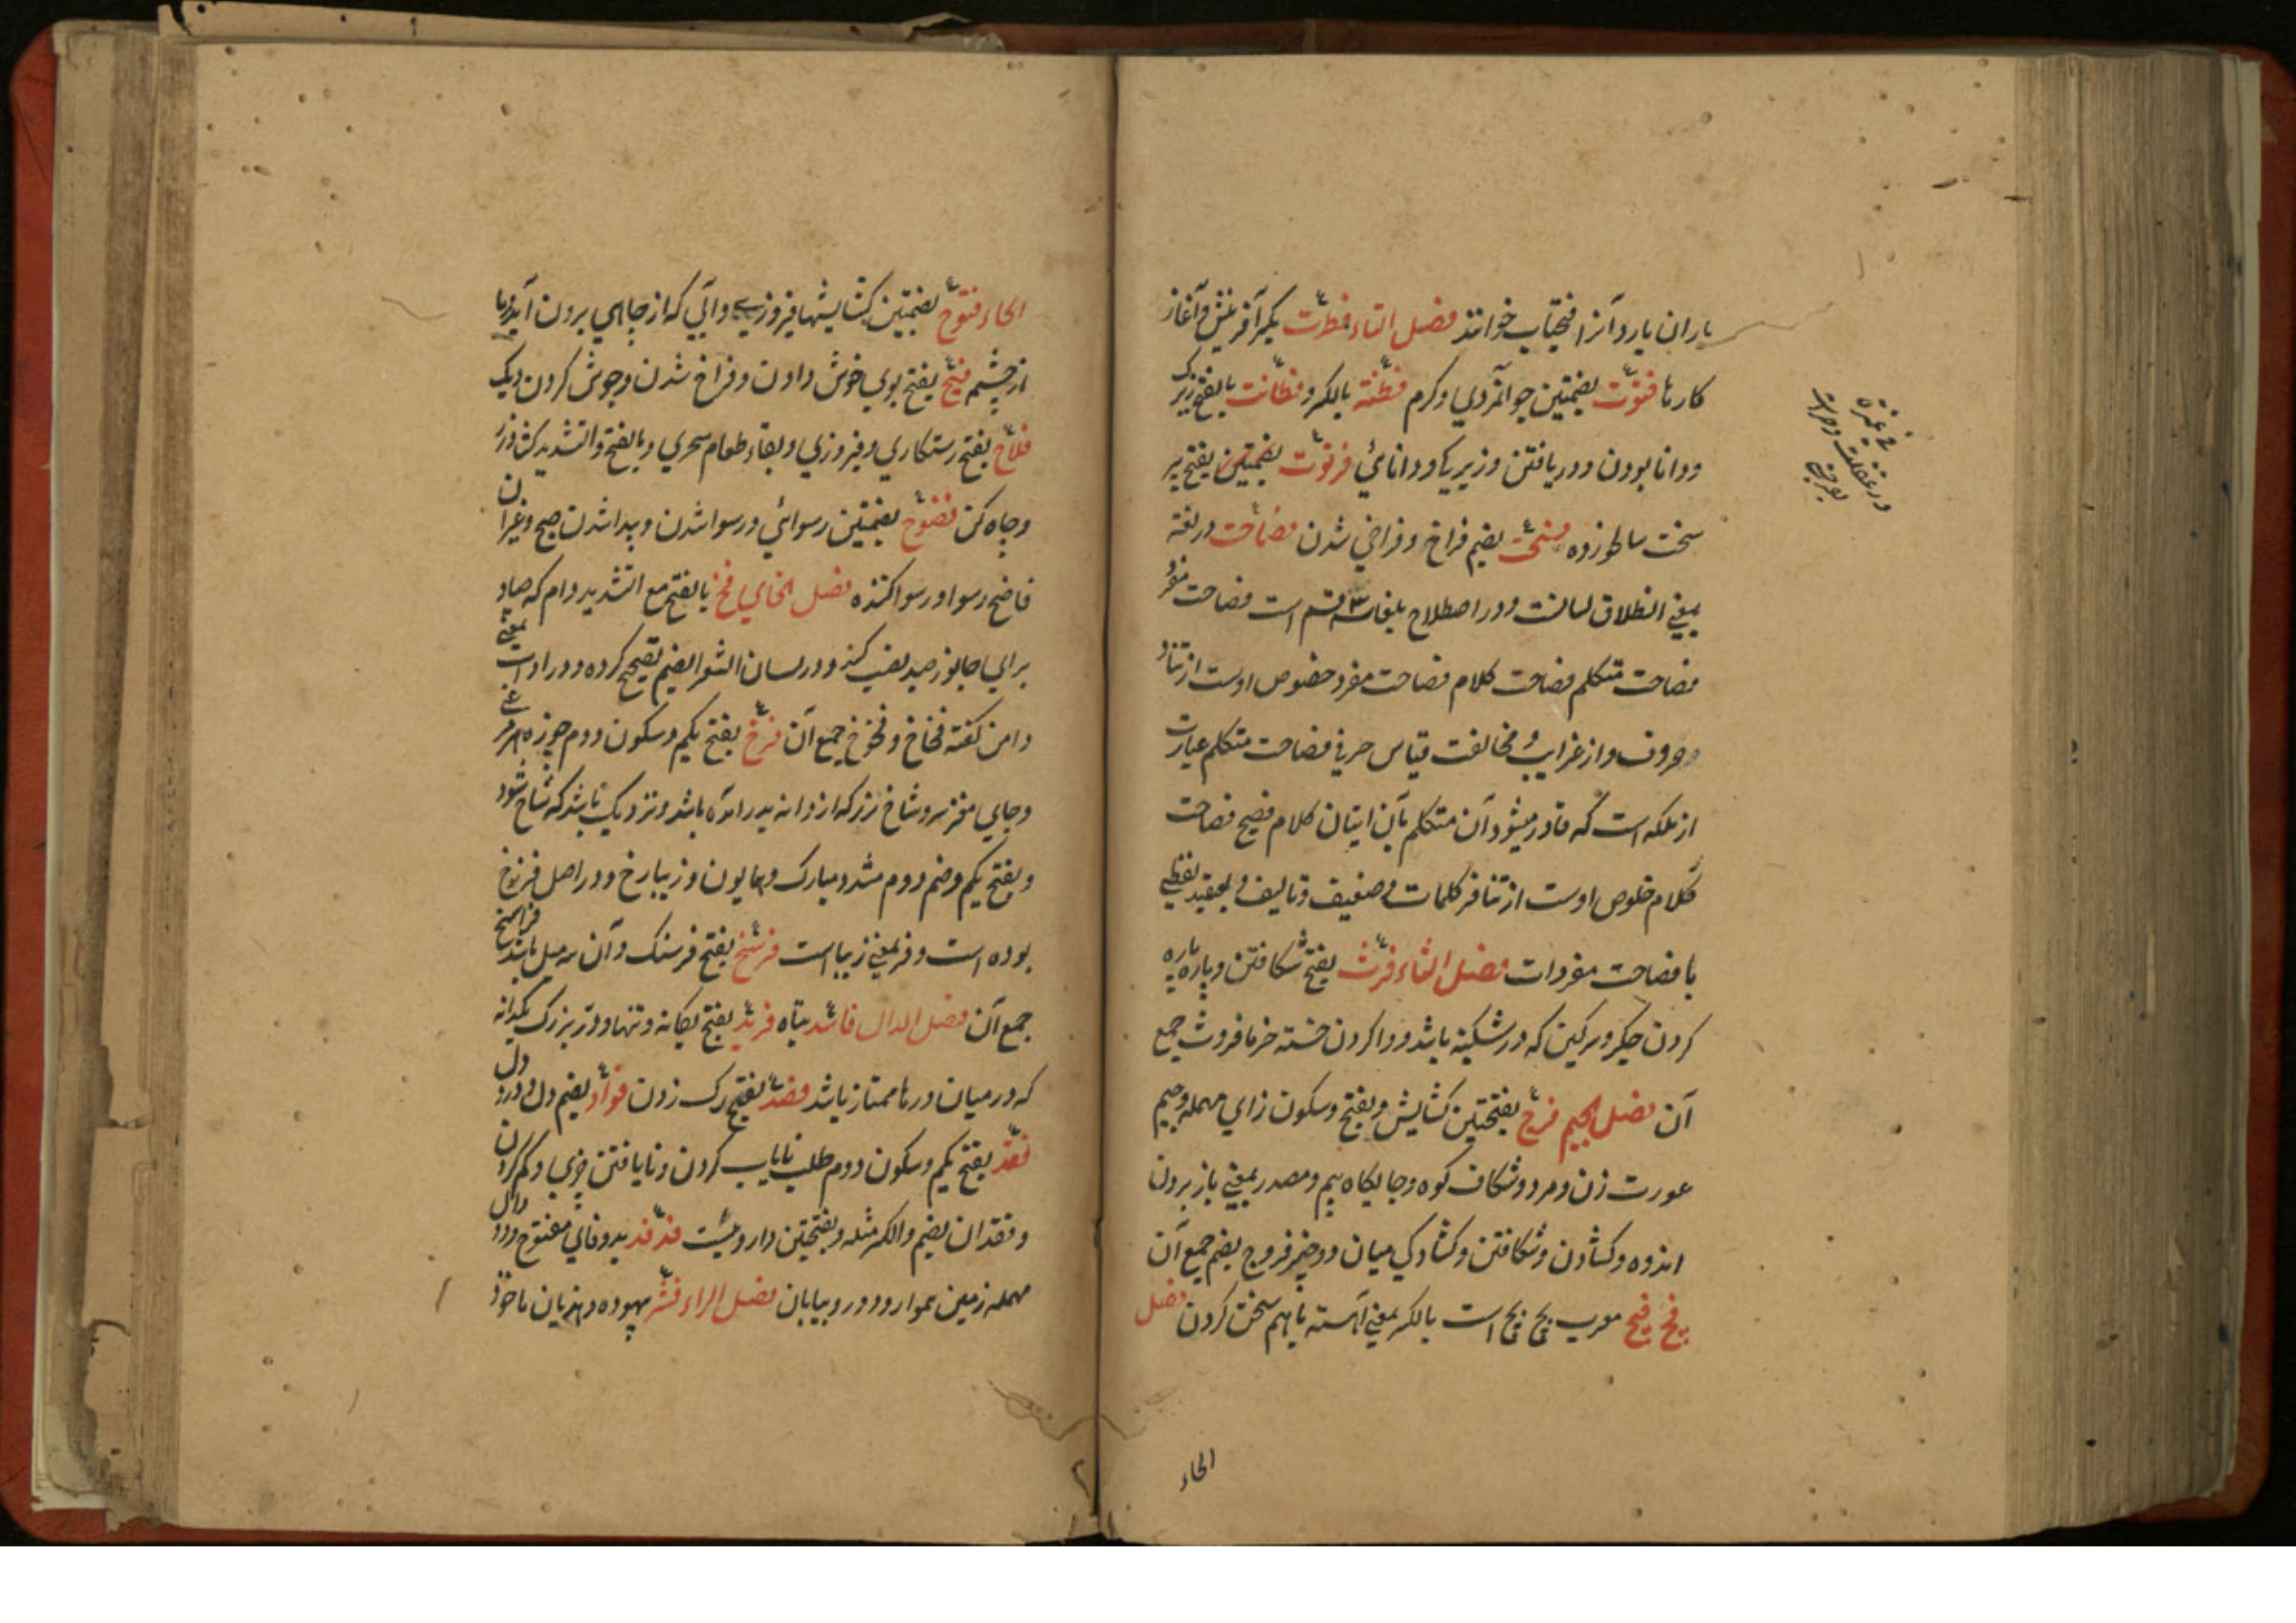 باران بارد آنرا فتحیاب خوانند فصل التاء فطرت بکسر آفرینش و آغاز
کارها فتوّت بضمتین جوانمردی و کرم فطنة بالکسر و فطانت بالفتح زیرک
و دانا بودن و دریافتن و زیرکی و دانائی فرتوت بفتح پیر
سخت سالخورده فسحت بضم فراخ و فراخی شدن فصاحت در لغة
بمعنی انطلاق لسانت و در اصطلاح بلغا سه قسم است فصاحت مفرد
فصاحت متکلم فصاحت کلام فصاحت مفرد خلوص اوست از تنافر
حروف و از غرابت و مخالفت قیاس فصاحت متکلم عبارت
از ملکه است که قادر میشود آن متکلم بآن اتیان کلام فصیح فصاحت
کلام خلوص اوست از تنافر کلمات و ضعیف و تالیف و تعقید لفظی
با فصاحت مفردات فصل الثاء فرث بفتح شکافتن و پاره پاره
کردن جگر و سرکین که در شکنبه باشد و وا کردن خسته خرما فروث جمع
آن فصل الجیم فرج بفتحتین کشایش و بفتح و سکون رای مهمله و جیم
عورت زن و مرد و شکاف کوه و جایگاه بیم و مصدر بمعنی باز بردن
اندوه و کشادن و شکافتن و کشادگی میان دو چیز فروج بضم جمع آن
فج فج معرب بج بج است بالکسر بمعنی آهسته باهم سخن کردن فصل
الحاء
الحاء فتوح بضمتین کشایشها و فیروزی و آبی که از جاهی برون آید
از چشم فیح بفتح بوی خوش دادن و فراخ شدن و جوش کردن دیک
فلاح بفتح رستکاری و فیروزی و بقاء و طعام سحری و بالفتح و التشدید کشاورز
و چاه کن فضوح بضمتین رسوائی و رسوا شدن و پیدا شدن صبح و غیر آن
فاضح رسوا و رسوا کننده فصل الخای فخ بالفتح مع التشدید دام که صیاد
برای جانور صید نصب کند و در لسان الشعرا بضم تصحیح کرده و در ادات بمعنی
دامن کفته فخاخ و فخوخ جمع آن فرخ بفتح یکم و سکون دوم جوزه مرغ
و جای مغز سر و شاخ زرز که از دانه بدر آمده باشد و نزدیک باشد که شاخ شود
و بفتح یکم و ضم دوم مشدد مبارک و همایون و زیبا رخ و در اصل فررخ
بوده است و فر بمعنی زیبا است فرسخ بفتح فرسنک و آن سه میل باشد فراسخ
جمع آن فصل الدال فاسد تباه فرید بفتح یکانه و تنها و در بزرک یکدانه
که در میان درها ممتاز باشد فصد بفتح رک زدن فؤاد بضم دل و درد دل
فقد بفتح یکم و سکون دوم طلب نایاب کردن و نایافتن چیزی و کم کردن
و فقدان بضم و الکسر مثله و بفتحتین داروئیست فدفد بدو فای مفتوح و دو دال
مهمله زمین هموار و دور و بیابان فصل الراء فشر بیهوده و هذیان ماخوذ